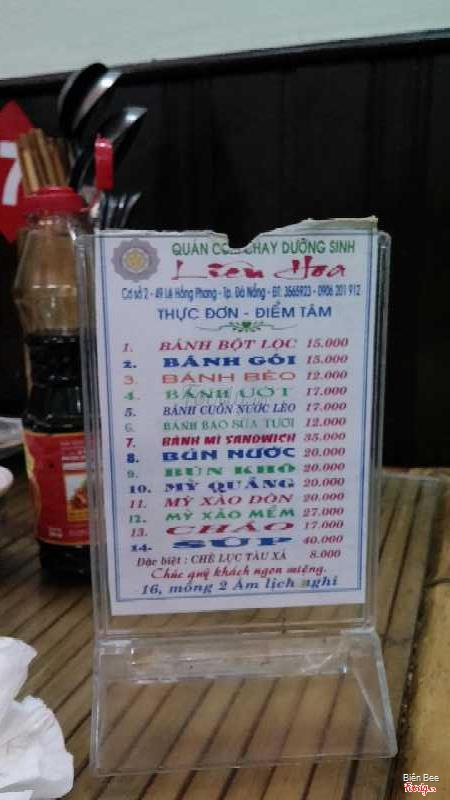 7
QUÁN CƠM CHAY DƯỠNG SINH
Liên Hoa
Cơ sở 2 - 49 Lê Hồng Phong - Tp. Đà Nẵng - ĐT: 3565923 - 0906 201 912
THỰC ĐƠN - ĐIỂM TÂM
1. BÁNH BỘT LỌC 15.000
2. BÁNH GÓI 15.000
3. BÁNH BÈO 12.000
4. BÁNH ƯỚT 17.000
5. BÁNH CUỐN NƯỚC LÈO 17.000
6. BÁNH BAO SỮA TƯƠI 12.000
7. BÁNH MÌ SANDWICH 35.000
8. BÚN NƯỚC 20.000
9. BÚN KHÔ 20.000
10. MỲ QUẢNG 20.000
11. MỲ XÀO DÒN 20.000
12. MỲ XÀO MỀM 27.000
13. CHÁO 17.000
14. SÚP 40.000
Đặc biệt : CHÈ LỤC TÀU XÁ 8.000
Chúc quý khách ngon miệng.
16, mồng 2 Âm lịch nghỉ
Biên Bee
Foody.vn